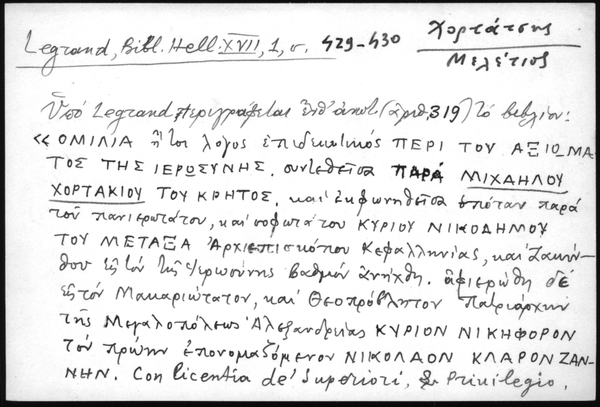 Χορτάτσης
Μελέτιος
Legrand, Bibl. Hell. XVII, 1, σ. 429-430
Ὑπό Legrand περιγράφεται (ἀριθ. 319) τό βιβλίον:
«ΟΜΙΛΙΑ ἤτοι λόγος ἐπιδεικτικός ΠΕΡΙ ΤΟΥ ΑΞΙΩΜΑ
ΤΟΣ ΤΗΣ ΙΕΡΩΣΥΝΗΣ. συντεθεῖσα ΠΑΡΑ ΜΙΧΑΗΛΟΥ
ΧΟΡΤΑΚΙΟΥ ΤΟΥ ΚΡΗΤΟΣ, καί ἐκφωνηθεῖσα ὁπόταν παρά
τοῦ πανιερωτάτου, καί σοφωτάτου ΚΥΡΙΟΥ ΝΙΚΟΔΗΜΟΥ
ΤΟΥ ΜΕΤΑΞΑ Ἀρχιεπισκόπου Κεφαλληνίας, καί Ζακύν-
θου εἰς τόν τῆς Ἱερωσύνης βαθμόν ἀνήχθη. ἀφιερώθη δέ
εἰς τόν Μακαριώτατον, καί Θεοπρόβλητον Πατριάρχην
τῆς Μεγαλοπόλεως Ἀλεξανδρείας ΚΥΡΙΟΝ ΝΙΚΗΦΟΡΟΝ
τόν πρώην ἐπονομαζόμενον ΝΙΚΟΛΑΟΝ ΚΛΑΡΟΝΖΑΝ-
ΝΗΝ. Con licentia de' Superiori, & Privilegio.